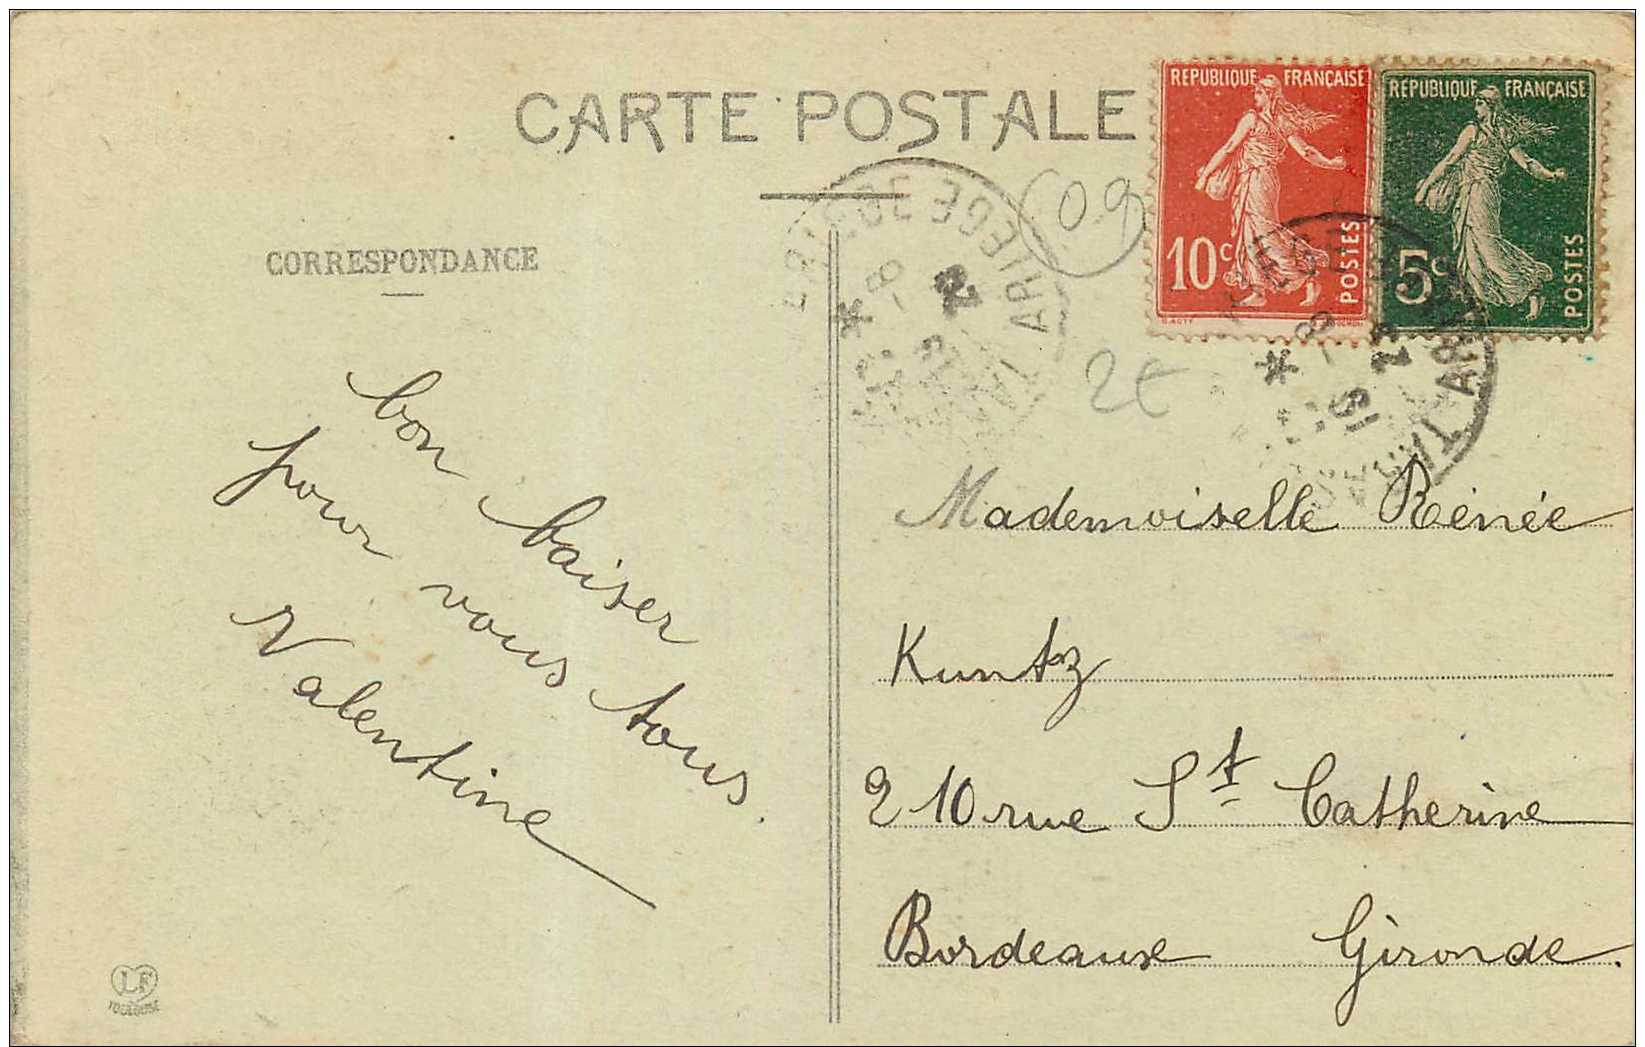 CARTE POSTALE
REPUBLIQUE FRANÇAISE
10c POSTES
REPUBLIQUE FRANÇAISE
5c POSTES
(09)
2€
CORRESPONDANCE
ARIEGE
ARIEGE
bon baiser
pour vous tous.
Valentine
Mademoiselle Rénée
Kuntz
210 rue St Catherine
Bordeaux Gironde.
LF
TOULOUSE